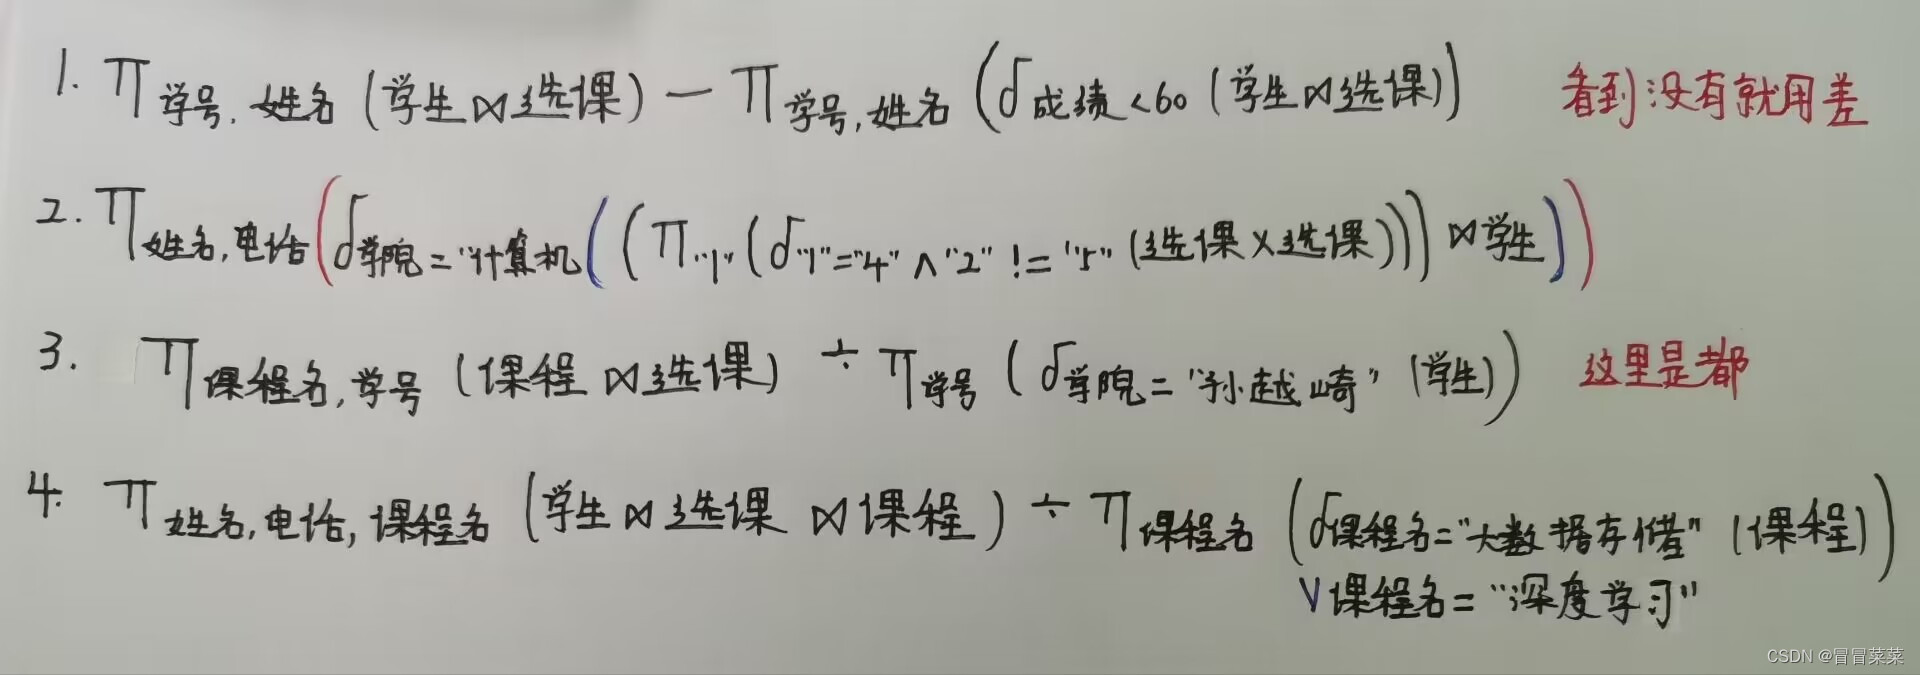 1. π 学号,姓名 (学生⋈选课) — π 学号,姓名 (δ 成绩<60 (学生⋈选课)) 看到没有就用差
2. π 姓名,电话 (δ 学院="计算机 ((π "1" (δ "1"="4" ∧ "2" != "5" (选课×选课))) ⋈学生))
3. π 课程名,学号 (课程⋈选课) ÷ π 学号 (δ 学院="孙越崎" (学生)) 这里是都
4. π 姓名,电话,课程名 (学生⋈选课⋈课程) ÷ π 课程名 (δ 课程名="大数据存储" (课程))
∨课程名="深度学习"
CSDN @冒冒菜菜